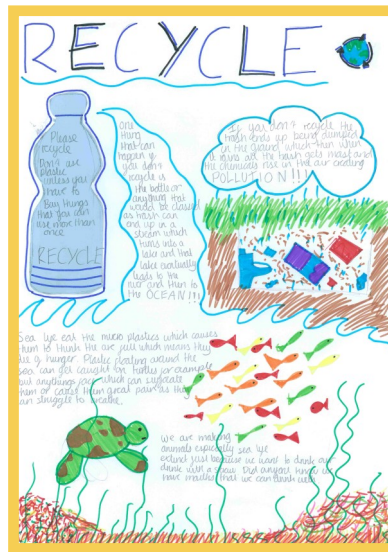 RECYCLE
Please
recycle
Don't use
plastic
unless you
have to
Buy things
that you can
use more than
once
RECYCLE
One
thing
that can
happen if
you don't
recycle is
the bottle or
anything that
would be classed
as trash can
end up in a
stream which
turns into a
lake and that
lake eventually
leads to the
river and then to
the OCEAN!!!
If you don't recycle the
trash ends up being dumped
in the ground which then when
it rains all the trash gets moist and
the chemicals rise in the air creating
POLLUTION!!!
Sea life eat the micro plastics which causes
them to think the are full which means they
die of hunger. Plastic floating around the
sea can get caught on turtles for example
but anything else which can suffocate
them or cause them great pain as they
can struggle to breathe.
We are making
animals espically sea life
extend just because we want to drink our
drink with a straw. Did anyone know we
have mouths that we can drink with